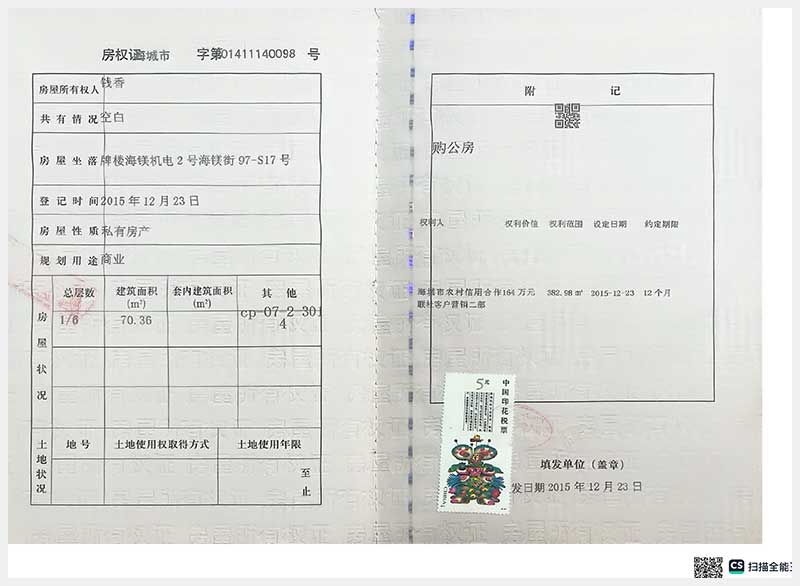 房权证海城市 字第01411140098 号
房屋所有权人 钱香
共有情况 空白
房屋坐落 牌楼海镁机电2号海镁街97-S17号
登记时间 2015年12月23日
房屋性质 私有房产
规划用途 商业
房屋状况
总层数 建筑面积(m²) 套内建筑面积(m²) 其他
1/6 70.36 cp-07-2-3014
土地状况
地号 土地使用权取得方式 土地使用年限
至
止
附 记
购公房
权利人 权利价值 权利范围 设定日期 约定期限
海城市农村信用合作 164万元 382.98㎡ 2015-12-23 12个月
联社客户营销二部
5元
中国印花税票
CHINA
填发单位(盖章)
发日期 2015年12月23日
CS 扫描全能王